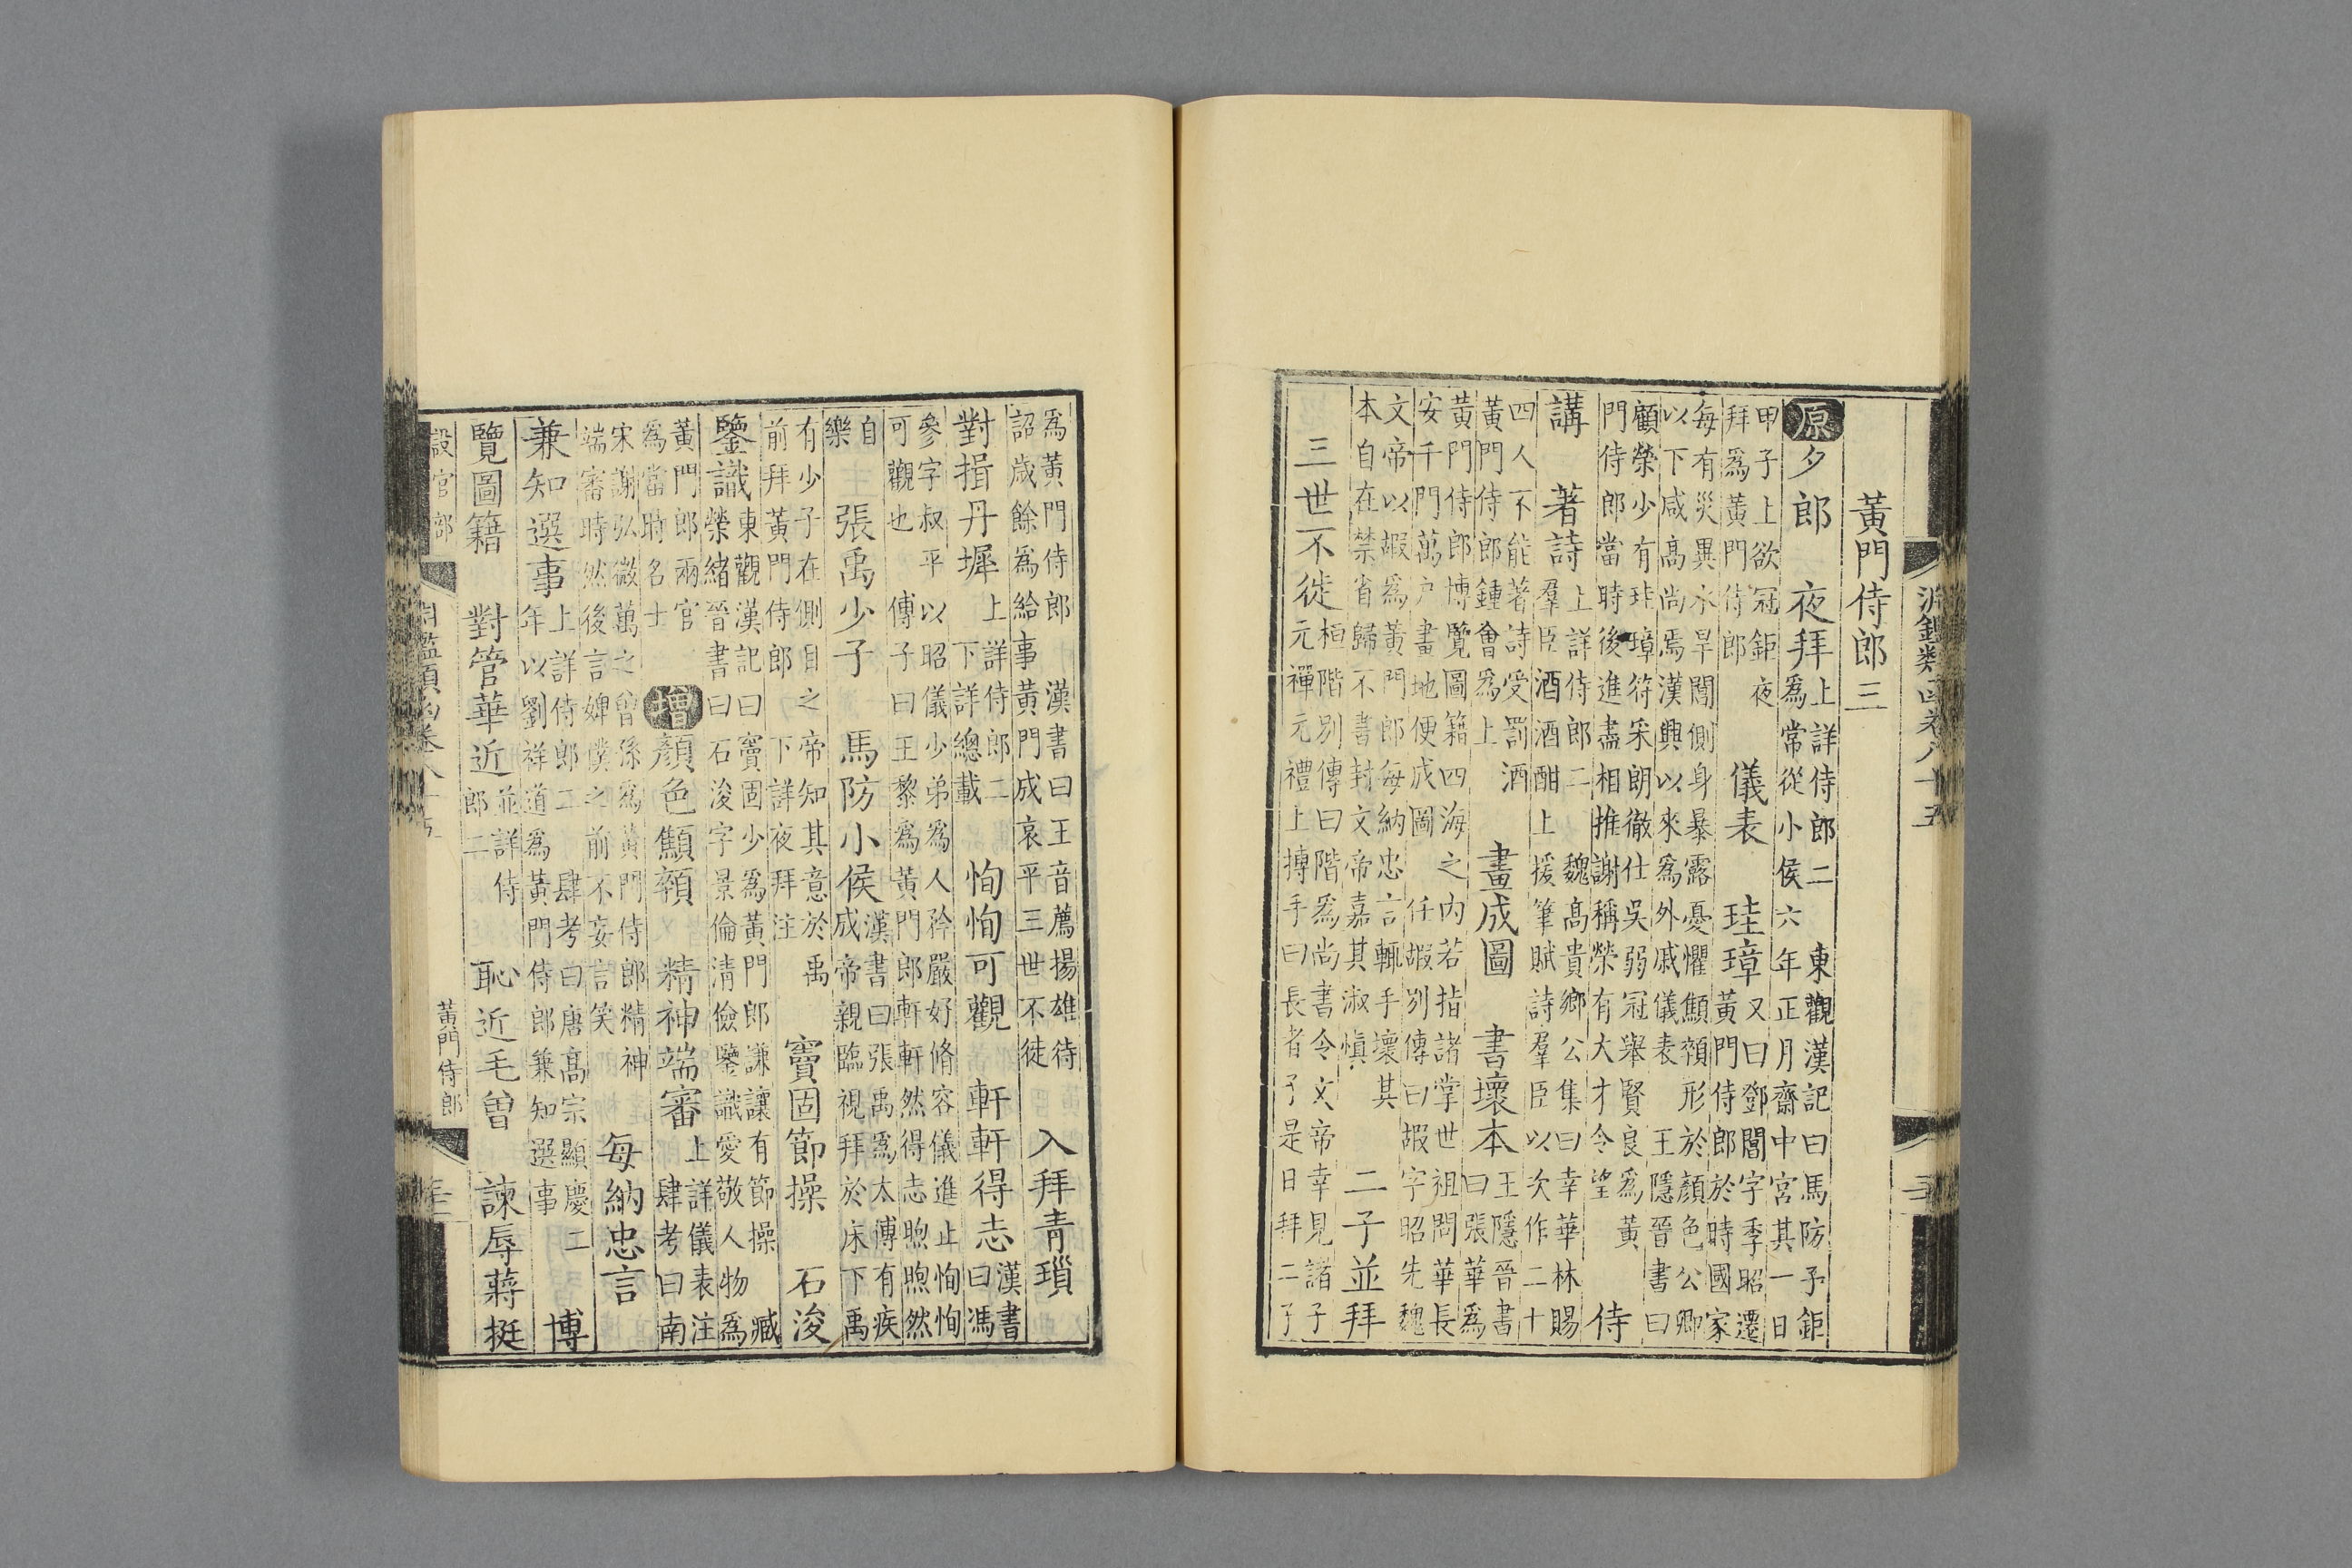 淵鑑類函卷八十五
黃門侍郎三
原夕郎 夜拜上詳侍郎二 東觀漢記曰馬防子鉅
爲常從小侯六年正月齋中宮其一日
甲子上欲冠鉅夜
拜爲黃門侍郎 儀表 珪璋又曰鄧閶字季昭遷
黃門侍郎於時國家
每有災異水旱閶側身暴露憂懼顦顇形於顏色公卿
以下咸高尚焉漢興以來爲外戚儀表 王隱晉書曰
顧榮少有珪璋符采朗徹仕吳弱冠舉賢良爲黃
門侍郎當時後進盡相推謝稱榮有大才令望 侍
講 著詩上詳侍郎二 魏高貴鄉公集曰幸華林賜
羣臣酒酒酣上援筆賦詩羣臣以次作二十
四人不能著詩受罰酒
黃門侍郎鍾會爲上 畫成圖 書壞本王隱晉書
曰張華爲
黃門侍郎博覽圖籍四海之內若指諸掌世祖問華長
安千門萬戶畫地便成圖 任嘏別傳曰嘏字昭先魏
文帝以嘏爲黃門郎每納忠言輒手壞其
本自在禁省歸不書封文帝嘉其淑愼 二子並拜
三世不徙桓階別傳曰階爲尚書令文帝幸見諸子
元禪元禮上搏手曰長者子是日拜二子
爲黃門侍郎 漢書曰王音薦揚雄待
詔歲餘爲給事黃門成哀平三世不徙 入拜青瑣
對揖丹墀上詳侍郎二
下詳總載 恂恂可觀 軒軒得志漢書
曰馮
參字叔平以昭儀少弟爲人矜嚴好脩容儀進止恂恂
可觀也 傅子曰王黎爲黃門郎軒軒然得志煦煦然
自
樂 張禹少子 馬防小侯漢書曰張禹爲太傅有疾
成帝親臨視拜於床下禹
有少子在側目之帝知其意於禹
前拜黃門侍郎 下詳夜拜注 竇固節操 石浚
鑒識東觀漢記曰竇固少爲黃門郎謙讓有節操 臧
榮緒晉書曰石浚字景倫淸儉鑒識愛敬人物爲
黃門郎兩官
爲當時名士 增顏色顦顇 精神端審上詳儀表注
肆考曰南
宋謝弘微萬之曾孫爲黃門侍郎精神
端審時然後言婢僕之前不妄言笑 每納忠言 博
兼知選事上詳侍郎二 肆考曰唐高宗顯慶二
年以劉祥道爲黃門侍郎兼知選事
覽圖籍 對管華近並詳侍
郎二 恥近毛曾 諫辱蔣挺
設官部 黃門侍郎